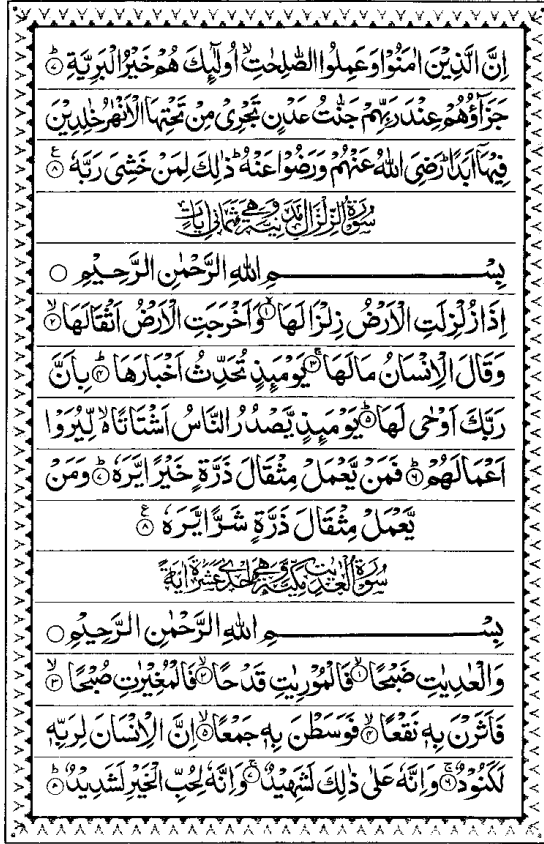 اِنَّ الَّذِيْنَ اٰمَنُوْا وَعَمِلُوا الصّٰلِحٰتِ ۙ اُولٰٓئِكَ هُمْ خَيْرُ الْبَرِيَّةِ ؕ ۷
جَزَآؤُهُمْ عِنْدَ رَبِّهِمْ جَنّٰتُ عَدْنٍ تَجْرِيْ مِنْ تَحْتِهَا الْاَنْهٰرُ خٰلِدِيْنَ
فِيْهَآ اَبَدًا ؕ رَضِيَ اللّٰهُ عَنْهُمْ وَرَضُوْا عَنْهُ ؕ ذٰلِكَ لِمَنْ خَشِيَ رَبَّهٗ ۸ ع
سُوْرَةُ الزِّلْزَالِ مَدَنِيَّةٌ وَّهِيَ ثَمَانِيْ اٰيَاتٍ
بِسْــــــــــــمِ اللّٰهِ الرَّحْمٰنِ الرَّحِيْمِ ○
اِذَا زُلْزِلَتِ الْاَرْضُ زِلْزَالَهَا ۙ ۱ وَاَخْرَجَتِ الْاَرْضُ اَثْقَالَهَا ۙ ۲
وَقَالَ الْاِنْسَانُ مَا لَهَا ۚ ۳ يَوْمَئِذٍ تُحَدِّثُ اَخْبَارَهَا ؕ ۴ بِاَنَّ
رَبَّكَ اَوْحٰى لَهَا ؕ ۵ يَوْمَئِذٍ يَّصْدُرُ النَّاسُ اَشْتَاتًا ۙ۬ لِّيُرَوْا
اَعْمَالَهُمْ ؕ ۶ فَمَنْ يَّعْمَلْ مِثْقَالَ ذَرَّةٍ خَيْرًا يَّرَهٗ ؕ ۷ وَمَنْ
يَّعْمَلْ مِثْقَالَ ذَرَّةٍ شَرًّا يَّرَهٗ ۸ ع
سُوْرَةُ الْعٰدِيٰتِ مَكِّيَّةٌ وَّهِيَ اِحْدٰى عَشْرَةَ اٰيَةً
بِسْــــــــــــمِ اللّٰهِ الرَّحْمٰنِ الرَّحِيْمِ ○
وَالْعٰدِيٰتِ ضَبْحًا ۙ ۱ فَالْمُوْرِيٰتِ قَدْحًا ۙ ۲ فَالْمُغِيْرٰتِ صُبْحًا ۙ ۳
فَاَثَرْنَ بِهٖ نَقْعًا ۙ ۴ فَوَسَطْنَ بِهٖ جَمْعًا ۙ ۵ اِنَّ الْاِنْسَانَ لِرَبِّهٖ
لَكَنُوْدٌ ۚ ۶ وَاِنَّهٗ عَلٰى ذٰلِكَ لَشَهِيْدٌ ۚ ۷ وَاِنَّهٗ لِحُبِّ الْخَيْرِ لَشَدِيْدٌ ؕ ۸